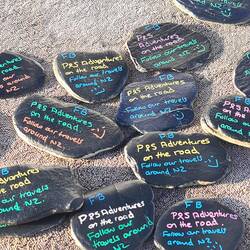 P&S Adventures
on the road.
Follow our
FB
P&S Adventures
on the road
Follow our travels
around NZ.
FB
P&S Adventures
on the road.
Follow our travels
around NZ.
FB
P&S Adventures
on the road.
Follow our travels
around NZ.
P&S Adventures
on the road.
Follow our travels
around NZ.
FB
P&S Adventures
on the road.
Follow our travels
around NZ.
P&S Adventures
on the road.
Follow our travels
around NZ.
P&S Adventures
on the road.
Follow our travels
around NZ.
FB
P&S Adventures
on the road
Follow our
travels
around NZ
FB
P&S Adventures
on the road.
Follow our travels
around NZ.